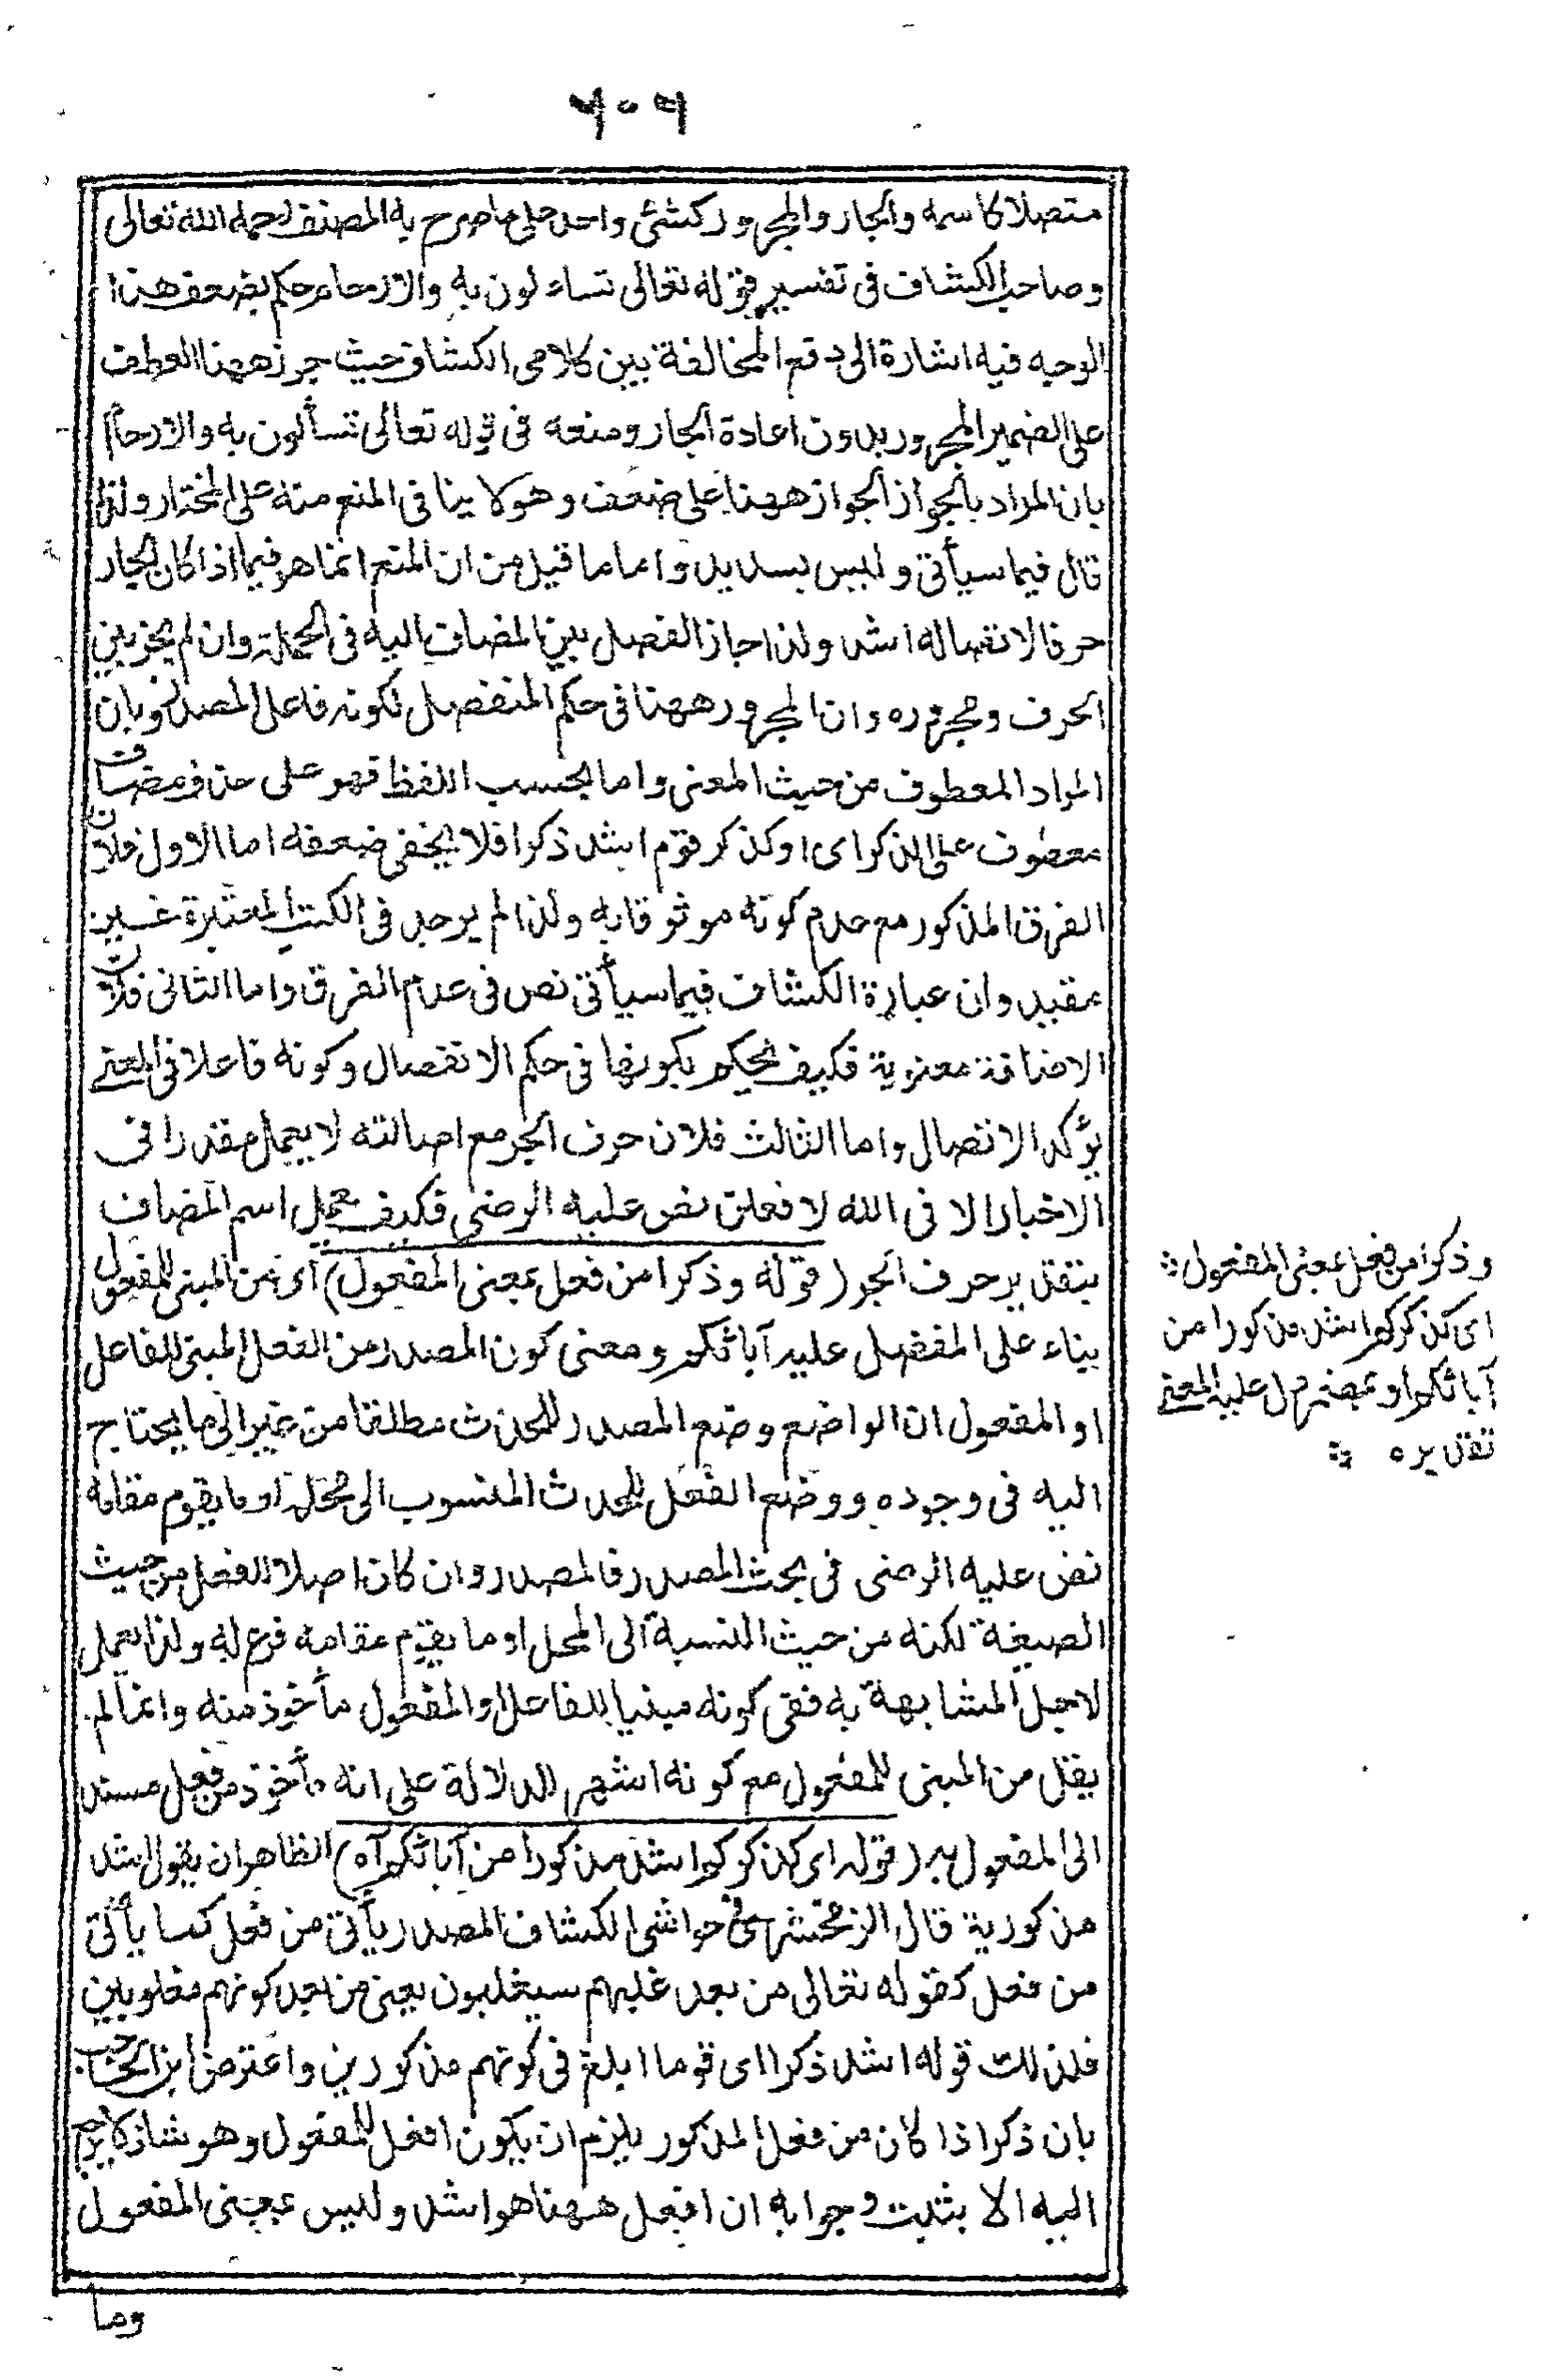 ٦٠٦
متصلا كاسمه والجار والمجرور كشئ واحد على ما صرح به المصنف رحمه الله تعالى
وصاحب الكشاف فى تفسير قوله تعالى تساءلون به والارحام حكم بضعف هذا
الوجه فيه اشارة الى دفع المخالفة بين كلامى الكشاف حيث جوز ههنا العطف
على الضمير المجرور بدون اعادة الجار ومنعه فى قوله تعالى تسألون به والارحام
بان المراد بالجواز الجواز ههنا على ضعف وهو لا ينافى المنع منه على المختار ولذا
قال فيما سيأتى وليس بسديد واما ما قيل من ان المنع انما هو فيما اذا كان الجار
حرفا لاتصاله اشد ولذا جاز الفصل بين المضاف اليه فى الجملة وان لم يجز بين
الحرف ومجروره وان المجرور ههنا فى حكم المنفصل لكونه فاعل المصدر وبان
المراد المعطوف من حيث المعنى واما بحسب اللفظ فهو على حذف مضاف
معطوف على الذكر اى او كذكر قوم اشد ذكرا فلا يخفى ضعفه اما الاول فلان
الفرق المذكور مع عدم كونه موثوقا به ولذا لم يوجد فى الكتب المعتبرة غير
مقيد وان عبارة الكشاف فيما سيأتى نص فى عدم الفرق واما الثانى فلان
الاضافة معنوية فكيف يحكم بكونها فى حكم الانفصال وكونه فاعلا فى المعنى
يؤكد الاتصال واما الثالث فلان حرف الجر مع اصالته لا يعمل مقدرا فى
الاخبار الا فى الله لافعلن نص عليه الرضى فكيف يعمل اسم المضاف
بتقدير حرف الجر (قوله وذكرا من فعل بمعنى المفعول) اى من المبنى للمفعول
بناء على المفضل عليه آباءكم ومعنى كون المصدر من الفعل المبنى للفاعل
او المفعول ان الواضع وضع المصدر للحدث مطلقا من غير الى ما يحتاج
اليه فى وجوده ووضع الفعل للحدث المنسوب الى محله او ما يقوم مقامه
نص عليه الرضى فى بحث المصدر فالمصدر وان كان اصلا للفعل من حيث
الصيغة لكنه من حيث النسبة الى المحل او ما يقوم مقامه فرع له ولذا يعمل
لاجل المشابهة به فقى كونه مبنيا للفاعل او المفعول مأخوذ منه وانما لم
يقل من المبنى للمفعول مع كونه اشهر للدلالة على انه مأخوذ من فعل مسند
الى المفعول به (قوله اى كذكركم اشد مذكورا من آبائكم آه) الظاهر ان يقول اشد
مذكورية قال الزمخشرى فى حواشى الكشاف المصدر يأتى من فعل كما يأتى
من فعل كقوله تعالى من بعد غلبهم سيغلبون يعنى من بعد كونهم مغلوبين
فلذلك قوله اشد ذكرا اى قوما ابلغ فى كونهم مذكورين واعترض ابن الحاجب
بان ذكرا اذا كان من فعل المذكور يلزم ان يكون افعل للمفعول وهو شاذ لا يرجع
اليه الا بثبت وجوابه ان افعل ههنا هو اشد وليس بمعنى المفعول
وما
وذكرا من فعل بمعنى المفعول
اى كذكركم اشد مذكورا من
آبائكم او بمضمر دل عليه المعنى
تقديره